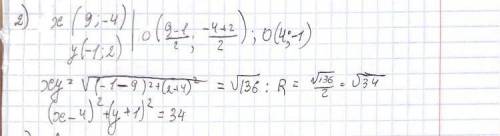 2) x (9; -4) | O((9-1)/2, (-4+2)/2); O(4; -1)
y (-1; 2)
xy = √((-1-9)²+(2+4)²) = √136 : R = √136/2 = √34
(x-4)²+(y+1)² = 34